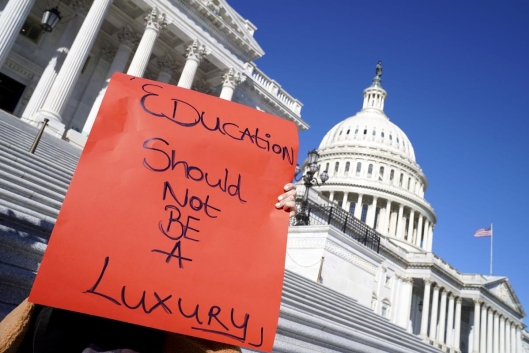 EDUCATION
Should
NOT
BE
A
LUXURY